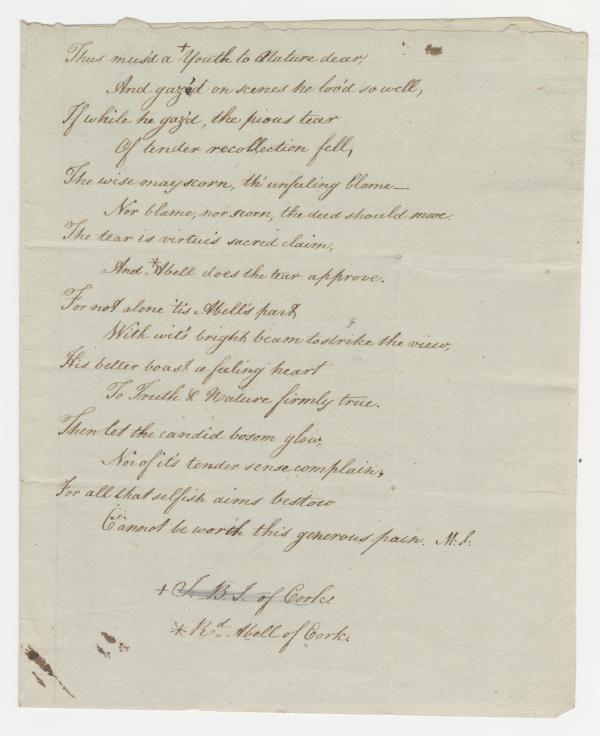 Thus mus'd a + Youth to Nature dear,
And gaz'd on scenes he lov'd so well,
If while he gaz'd, the pious tear
Of tender recollection fell,
The wise may scorn, th' unfeeling blame—
Nor blame, nor scorn, the deed should move:
The tear is virtue's sacred claim,
And * Abell does the tear approve.
For not alone 'tis Abell's part
With wit's bright beam to strike the view,
His better boast a feeling heart
To Truth & Nature firmly true.
Then let the candid bosom glow,
Nor of it's tender sense complain,
For all that selfish aims bestow
Cannot be worth this generous pain. M.S.
+ J. B. J. of Cork.
* Rd. Abell of Cork.